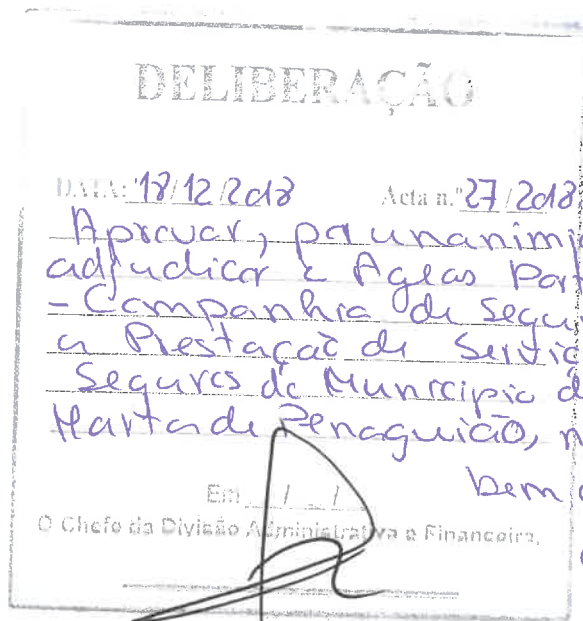 DELIBERAÇÃO
DATA: 18/12/2018 Acta n.º 27/2018
Aprovar, por unanimi
adjudicar à Ageas Port
- Companhia de Segu
a Prestação de Serviç
Seguros do Município d
Marta de Penaguião, n
bem
Em __/__/
O Chefe da Divisão Administrativa e Financeira,